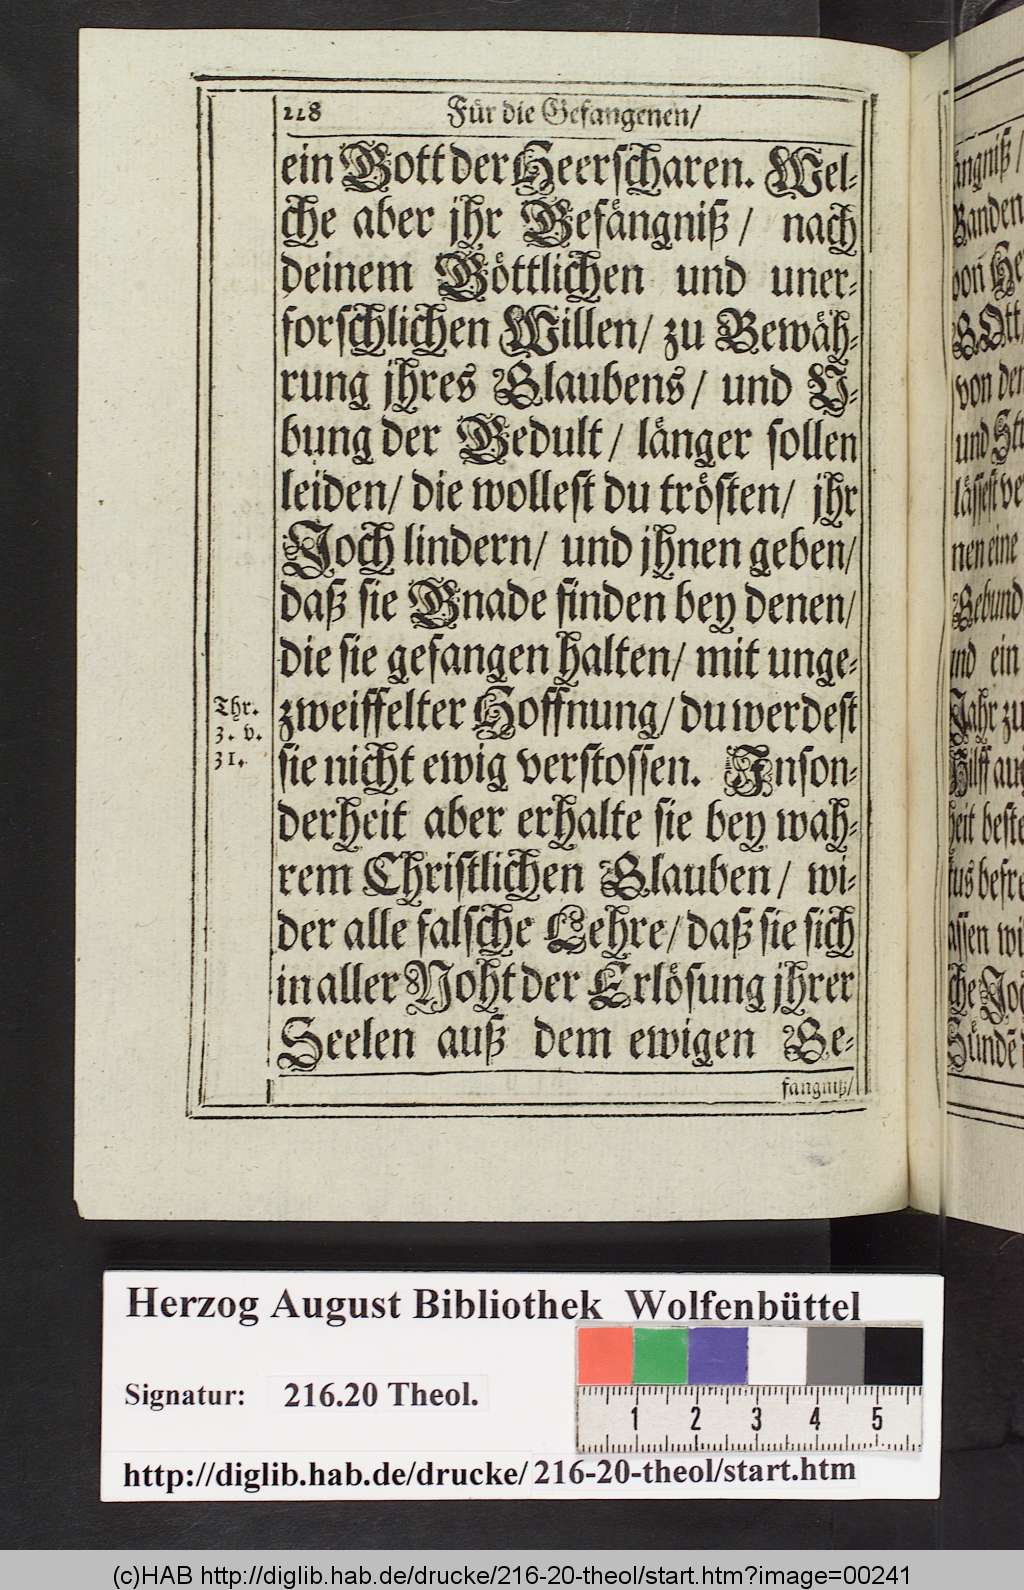 218 Für die Gefangenen/
ein Gott der Heerscharen. Wel-
che aber jhr Gefängniß/ nach
deinem Göttlichen und uner-
forschlichen Willen/ zu Bewäh-
rung jhres Glaubens/ und U-
bung der Gedult/ länger sollen
leiden/ die wollest du trösten/ jhr
Joch lindern/ und jhnen geben/
daß sie Gnade finden bey denen/
die sie gefangen halten/ mit unge-
Thr.
3. v.
31.
zweiffelter Hoffnung/ du werdest
sie nicht ewig verstossen. Inson-
derheit aber erhalte sie bey wah-
rem Christlichen Glauben/ wi-
der alle falsche Lehre/ daß sie sich
in aller Noht der Erlösung jhrer
Seelen auß dem ewigen Ge-
fängniß/
ängniß/
Banden
von He
GOtt
von den
und Stri
lässest ve
nen eine
Gebund
und ein
Jahr zu
Hilff auß
heit beste
tus befre
assen wi
che Joc
Sündē
Herzog August Bibliothek Wolfenbüttel
Signatur: 216.20 Theol.
1 2 3 4 5
http://diglib.hab.de/drucke/216-20-theol/start.htm
(c)HAB http://diglib.hab.de/drucke/216-20-theol/start.htm?image=00241